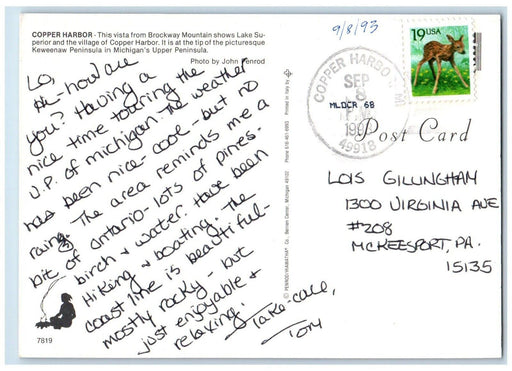 COPPER HARBOR - This vista from Brockway Mountain shows Lake Su-
perior and the village of Copper Harbor. It is at the tip of the picturesque
Keweenaw Peninsula in Michigan's Upper Peninsula.
Photo by John Penrod
Lo,
Hi-how are
you? Having a
nice time touring the
U.P. of michigan. The weather
has been nice-cool-but no
rain. The area reminds me a
bit of ontario-lots of pines-
birch & water. Have been
Hiking & boating. The
coast line is beautiful-
mostly rocky - but
just enjoyable &
relaxing.
Take-care,
Tom
7819
© PENROD/HIAWATHA Co. Berrien Center, Michigan 49102
Printed in Italy by
9/8/93
COPPER HARBOR
MI
SEP
8
PM
49918
MLOCR 68
19USA
Post Card
LOIS GILLINGHAM
1300 VIRGINIA AVE
#208
MCKEESPORT, PA.
15135